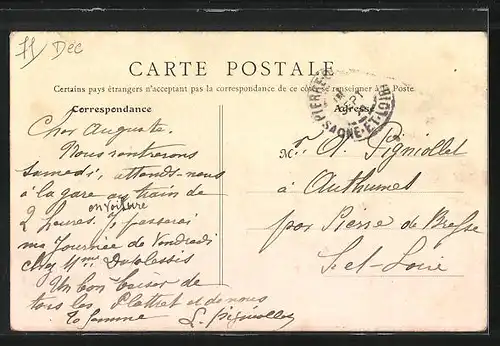 71 Dec
CARTE POSTALE
Certains pays étrangers n'acceptant pas la correspondance de ce côté, se renseigner à la Poste
Correspondance
Adresse
PIERRE
SEPT
SAONE-ET-LOIRE
Cher Auguste.
Nous rentrerons
samedi, attends-nous
à la gare au train de
en voiture
2 heures. je passerai
ma journée de Vendredi
chez Mme Duplessis
Un bon baiser de
tous les Plattret et de nous
ta femme L. Pigniollet
M. A. Pigniollet
à Authumes
par Pierre de Bresse
S.-et-Loire